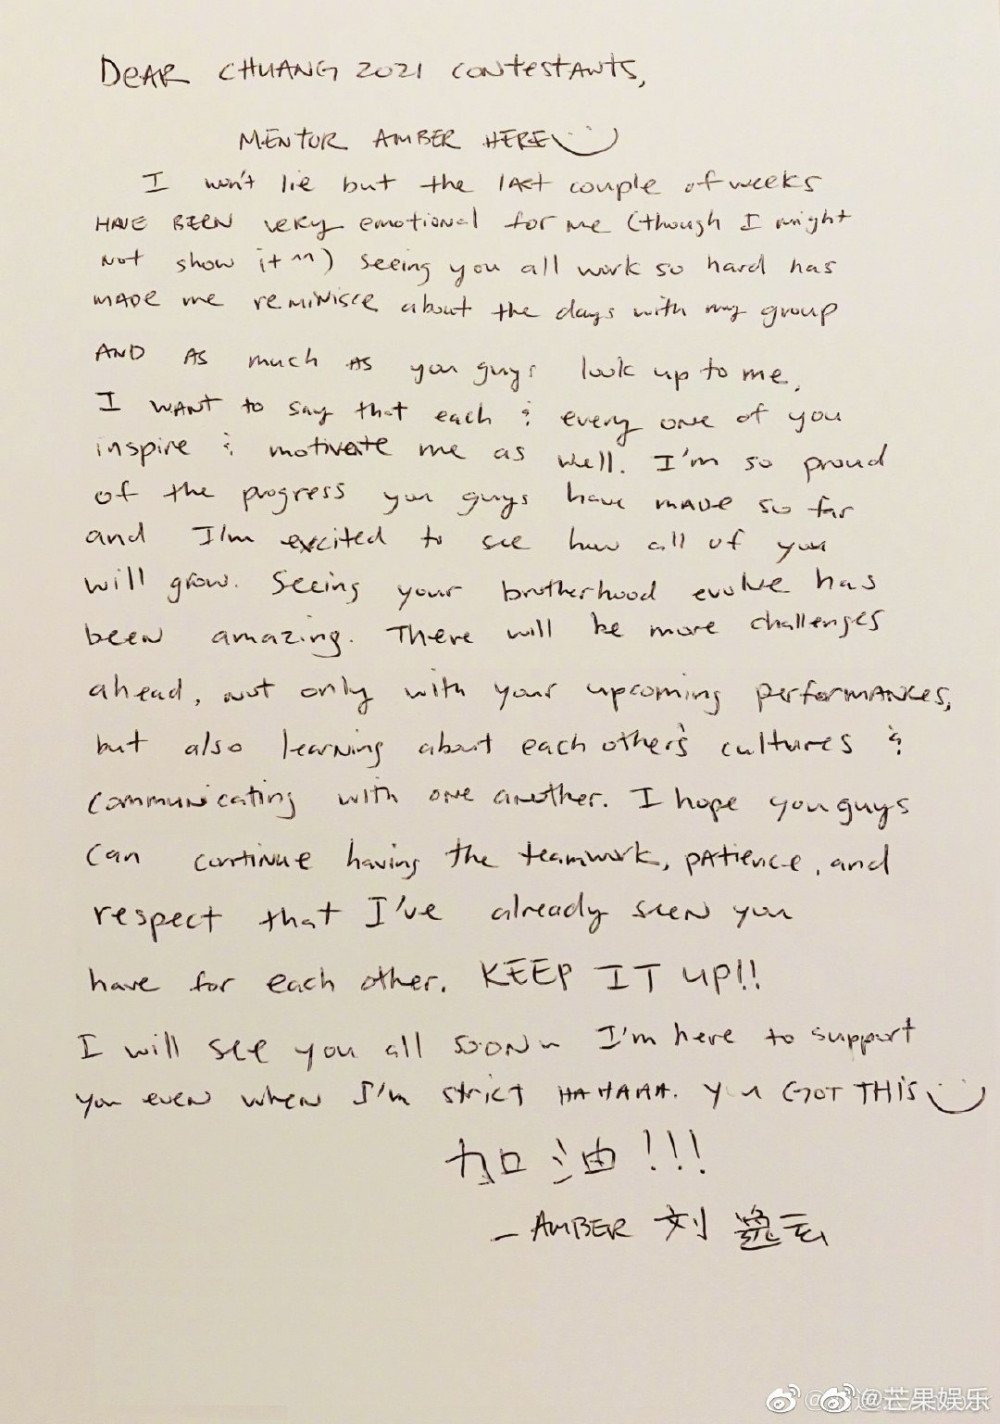 DEAR CHUANG 2021 CONTESTANTS,
MENTOR AMBER HERE
I won't lie but the last couple of weeks
HAVE BEEN very emotional for me (though I might
not show it ^^) Seeing you all work so hard has
MADE me reminisce about the days with my group
AND AS much AS you guys look up to me,
I WANT to say that each & every one of you
inspire & motivate me as well. I'm so proud
of the progress you guys have MADE so far
and I'm excited to see how all of you
will grow. Seeing your brotherhood evolve has
been amazing. There will be more challenges
ahead, not only with your upcoming performances,
but also learning about each other's cultures &
communicating with one another. I hope you guys
can continue having the teamwork, patience, and
respect that I've already seen you
have for each other. KEEP IT UP!!
I will see you all soon~ I'm here to support
you even when I'm strict HAHAHA. You GOT THIS
加油!!!
- AMBER 刘逸云
@芒果娱乐